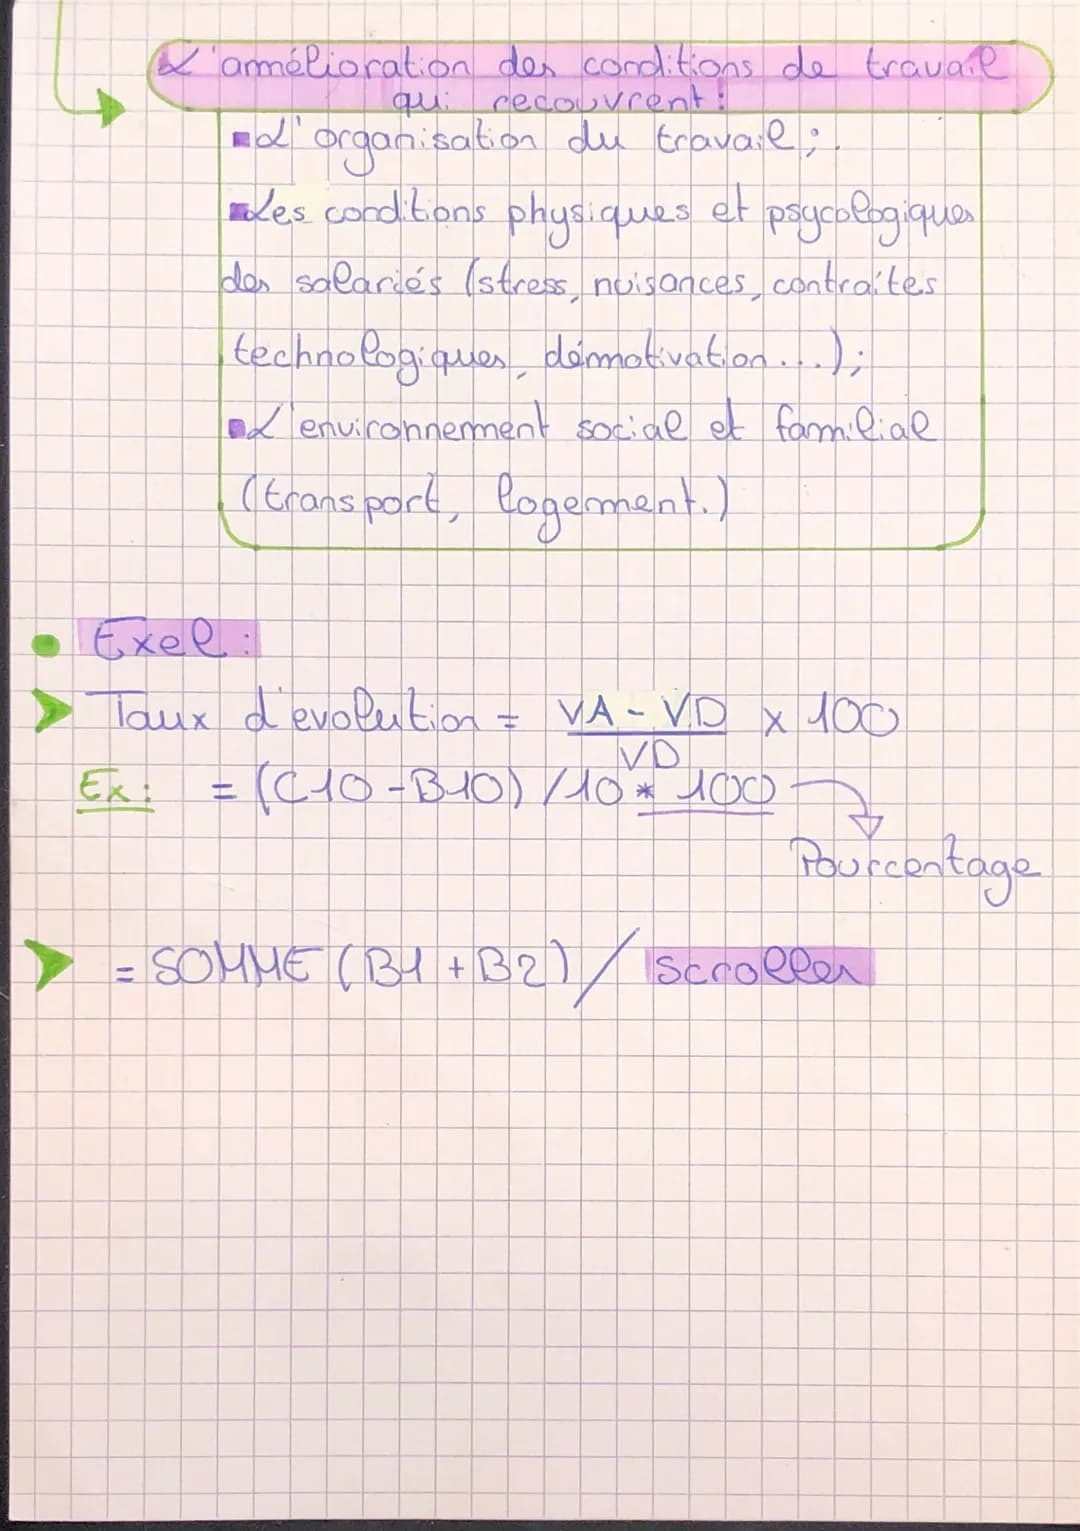 L'amélioration des conditions de travail
qui recouvrent :
L'organisation du travail ;.
Les conditions physiques et psycologiques
des salariés (stress, nuisances, contraites
technologiques, démotivation...);
L'environnement social et familial
(transport, logement.)
Exel :
Taux d'evolution = VA - VD x 100
VD
Ex : = (C10-B10) /10 * 100
Pourcentage
= SOMME (B1 + B2) / scroller